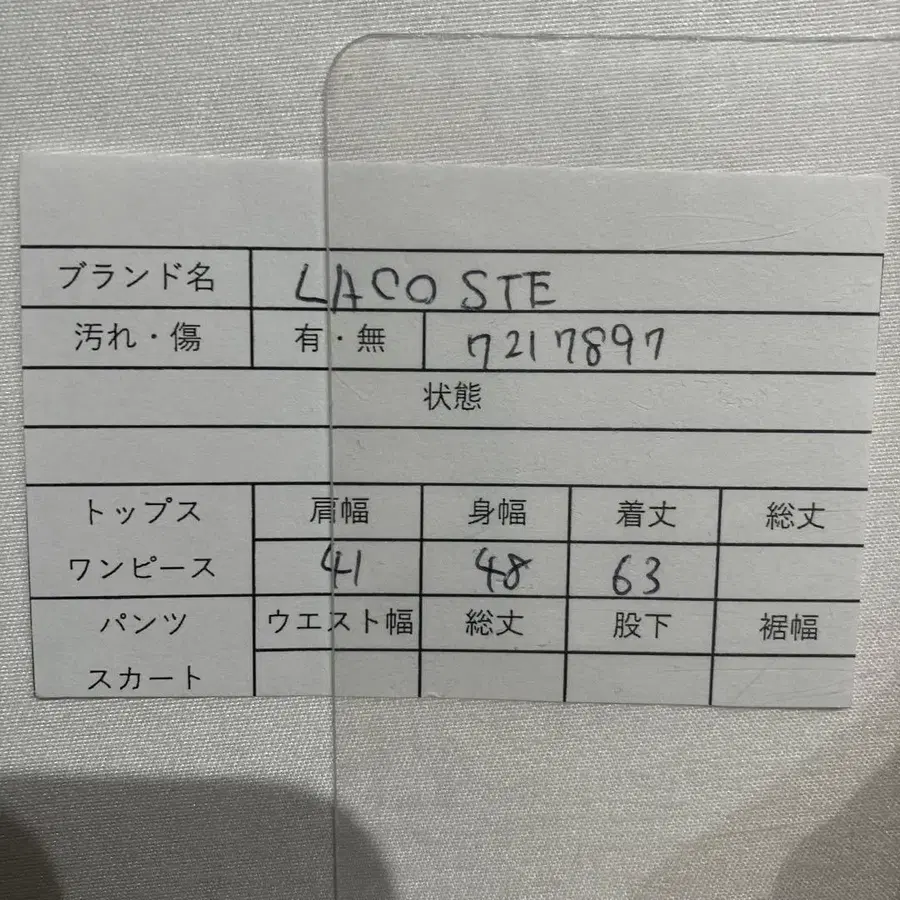 ブランド名 LACOSTE
汚れ・傷 有・無 7217897
状態
トップス 肩幅 身幅 着丈 総丈
ワンピース 41 48 63
パンツ ウエスト幅 総丈 股下 裾幅
スカート